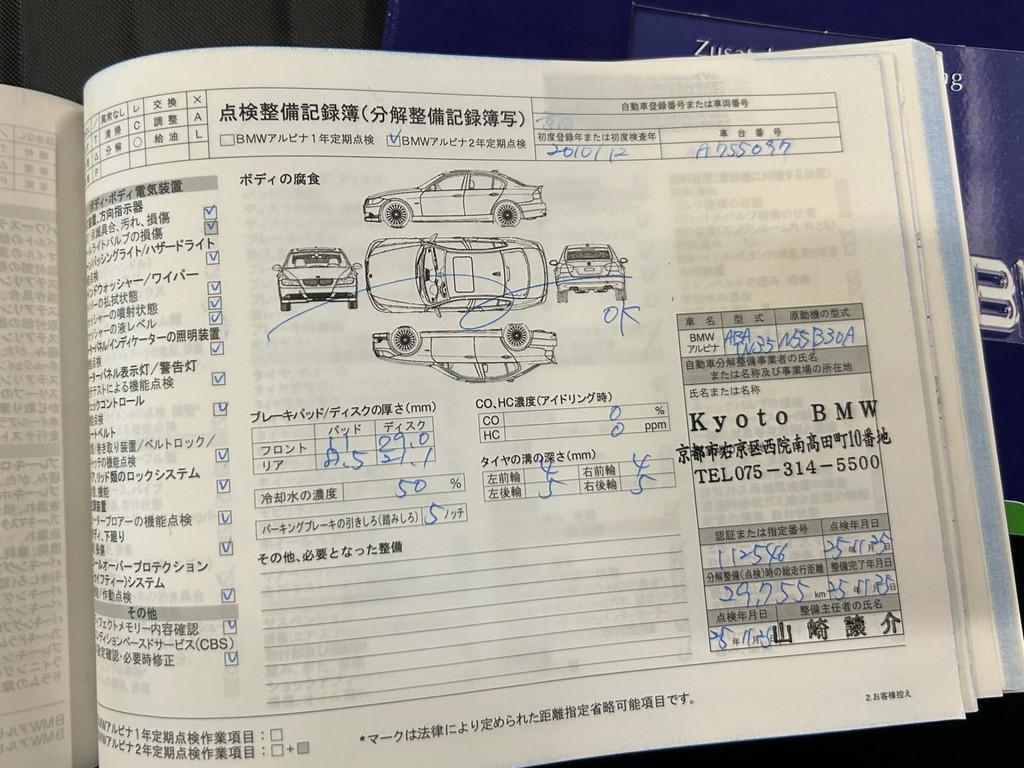 Zusat
ng
B
異常なし レ 交換 ×
清掃 C 調整 A
分解 ○ 給油 L
P
点検整備記録簿(分解整備記録簿写)
□BMWアルピナ1年定期点検 ☑BMWアルピナ2年定期点検
自動車登録番号または車両番号
初度登録年または初度検査年 車台番号
2010/12
ボディ・ボディ電気装置
方向指示器
具合、汚れ、損傷
ライトバルブの損傷
パッシングライト/ハザードライト
ンドウォッシャー/ワイパー
の払拭状態
ッシャーの噴射状態
ャーの液レベル
パネル/インディケーターの照明装置
ーターパネル表示灯/警告灯
テストによる機能点検
ェックコントロール
ートベルト
巻き取り装置/ベルトロック/
ッチの機能点検
リッド類のロックシステム
機能
ーターブロアーの機能点検
下廻り
損傷
ールオーバープロテクション
イフティー)システム
/作動点検
その他
フェクトメモリー内容確認
ンディションベースドサービス(CBS)
設定確認・必要時修正
ボディの腐食
OK
ブレーキパッド/ディスクの厚さ(mm)
パッド ディスク
フロント 11 29.0
リア
冷却水の濃度 50 %
パーキングブレーキの引きしろ(踏みしろ) 5 ノッチ
CO、HC濃度(アイドリング時)
CO 0 %
HC 0 ppm
タイヤの溝の深さ(mm)
左前輪 4 右前輪 4
左後輪 5 右後輪 5
その他、必要となった整備
車名 型式 原動機の型式
BMWアルピナ ABA N35 N55B30A
自動車分解整備事業者の氏名
または名称及び事業場の所在地
氏名または名称
Kyoto BMW
京都市右京区西院南高田町10番地
TEL075-314-5500
認証または指定番号 点検年月日
112546 25年11月25日
分解整備(点検)時の総走行距離 整備完了年月日
29,755 km 25年11月25日
点検年月日 整備主任者の氏名
山崎譲介
BMWアルピナ1年定期点検作業項目:□
BMWアルピナ2年定期点検作業項目:□+■
*マークは法律により定められた距離指定省略可能項目です。
2.お客様控え